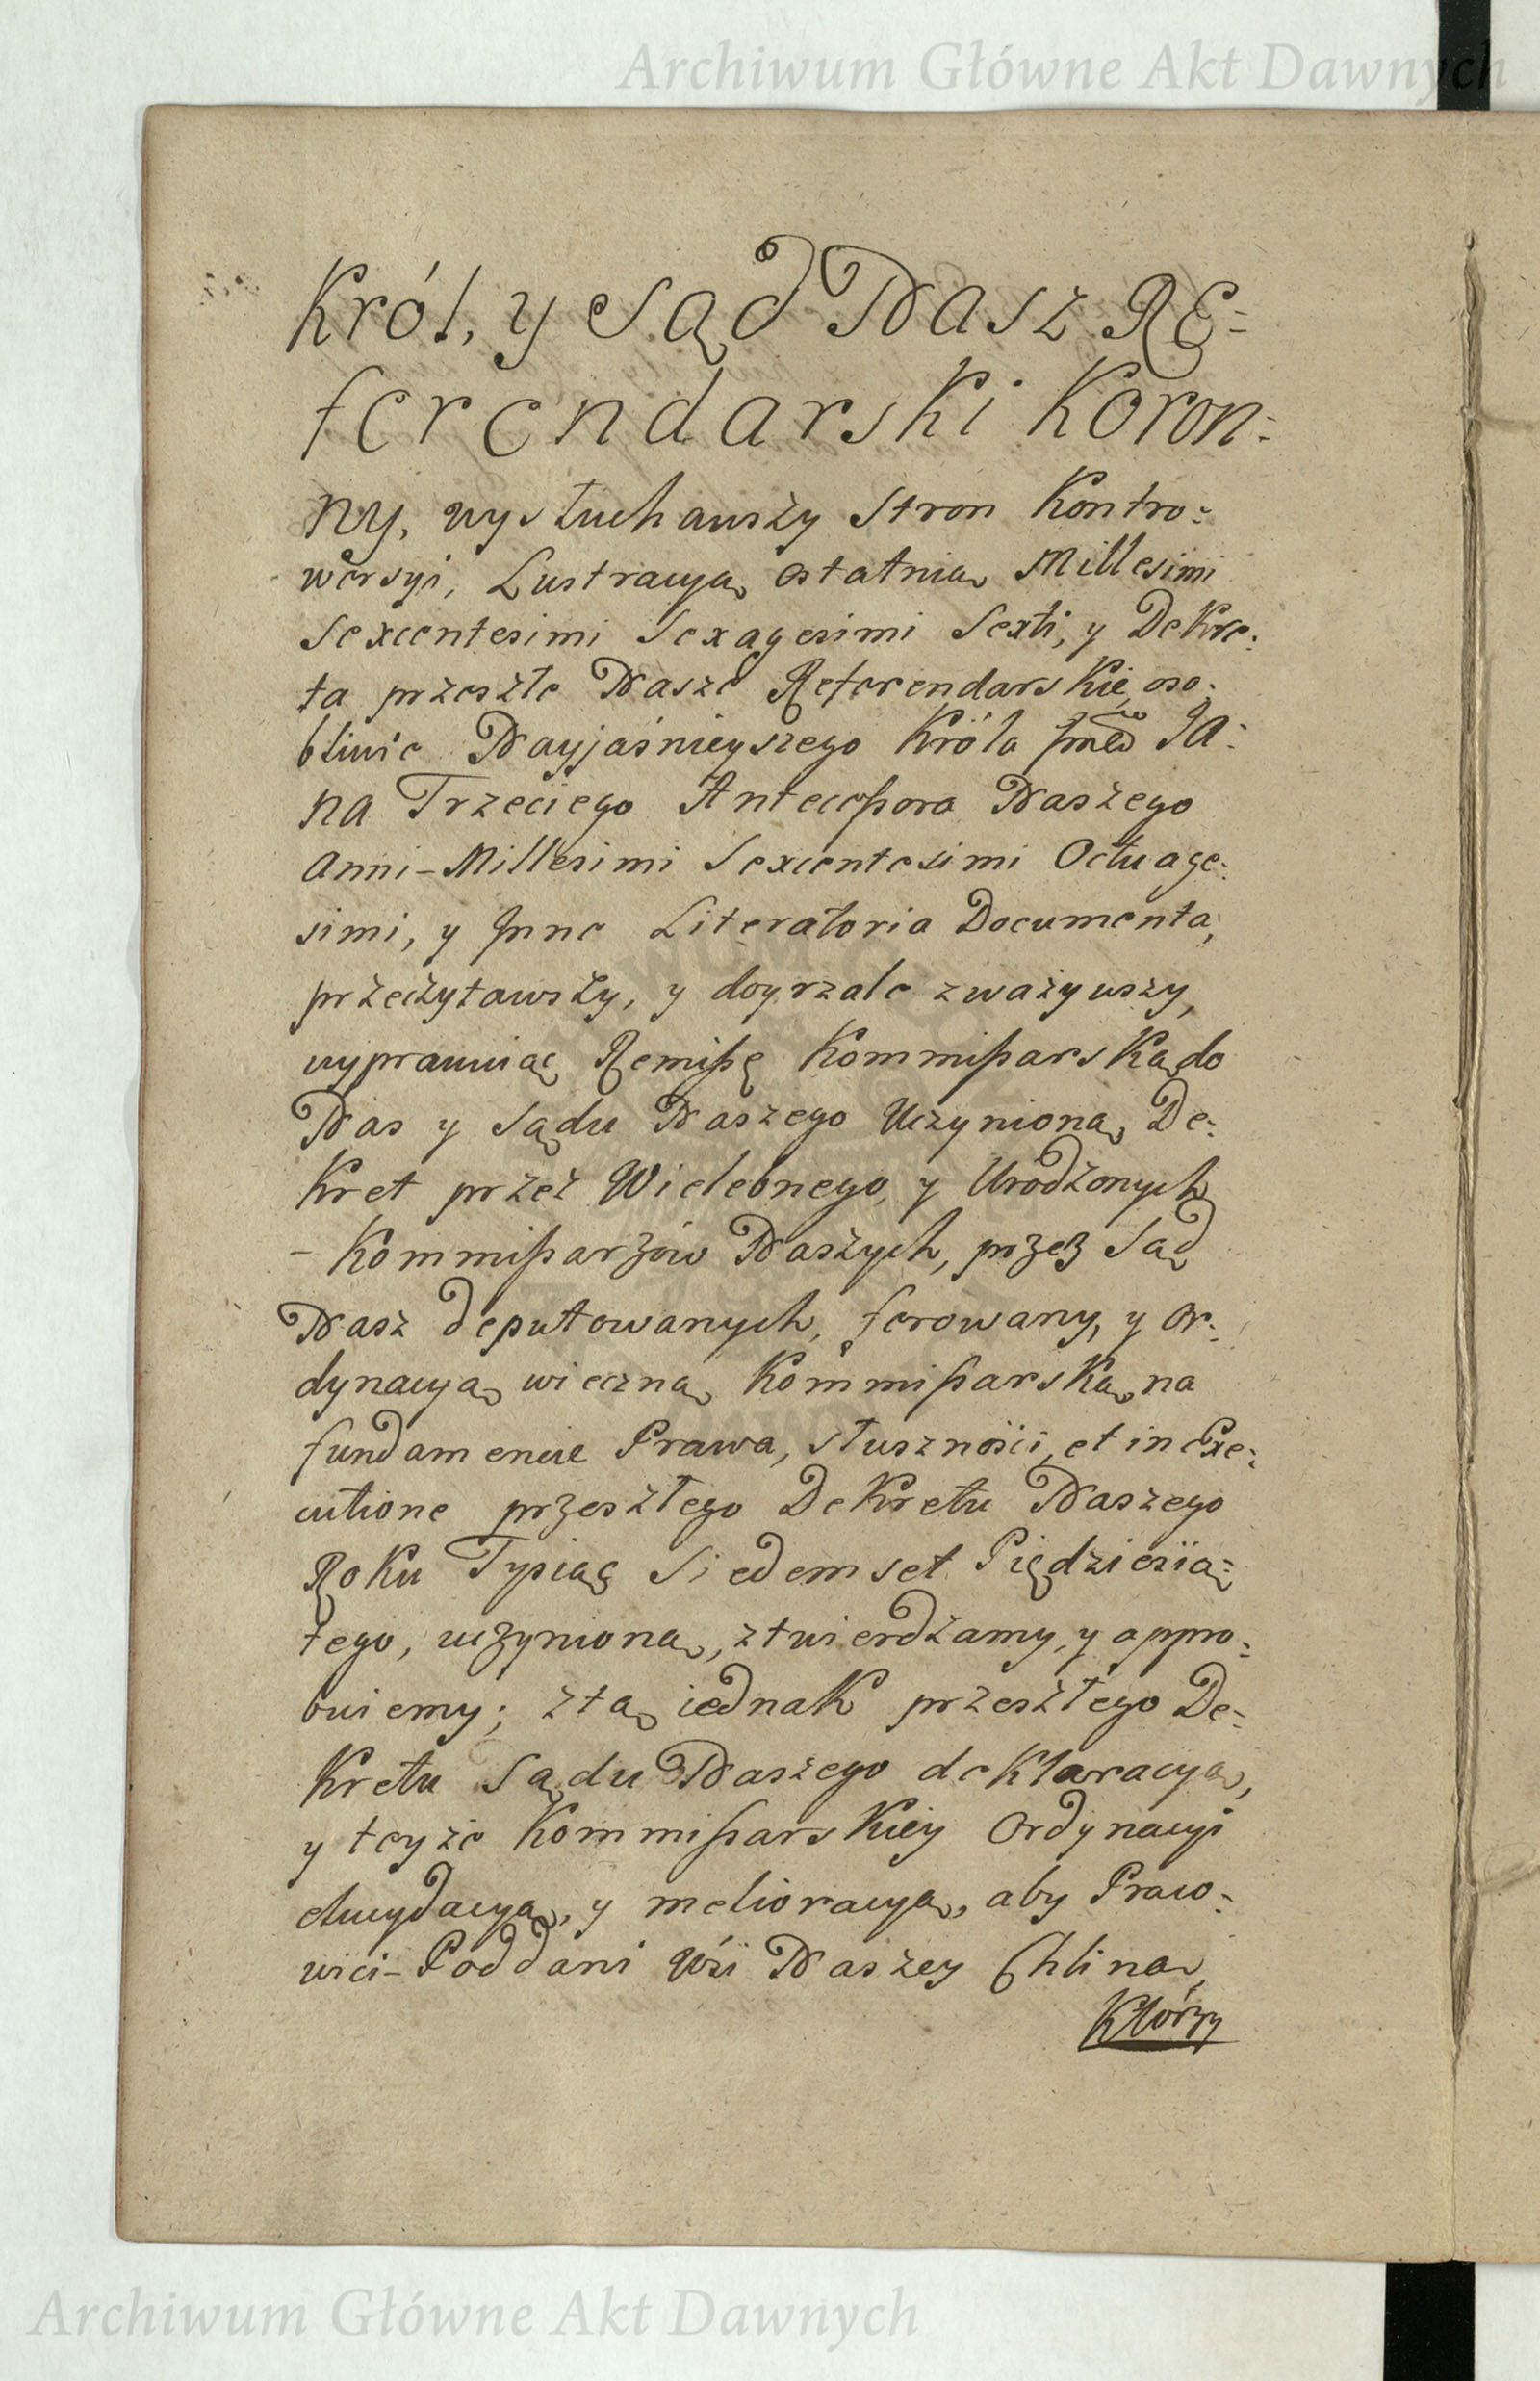 Archiwum Główne Akt Dawnych
Król, y Sąd Nasz RE=
ferendarski Koron=
ny, wysłuchawszy Stron Kontro=
wersyi, Lustracyą ostatnią Millesimi
Sexcentesimi Sexagesimi Sexti, y Dekre=
ta przeszłe Nasze Referendarskie, oso=
bliwie Nayjaśnieyszego Króla JA=
na Trzeciego Antecessora Naszego
Anni-Millesimi Sexcentesimi Octuage=
simi, y Inne Literatoria Documenta,
przeczytawszy, y doyrzale zważywszy,
wyprawuiąc Remissę Kommissarską do
Nas y Sądu Naszego Uczynioną, De=
kret przez Wielebnego, y Urodzonych
- Kommissarzów Naszych, przez Sąd
Nasz deputowanych, ferowany, y Or=
dynacyą wieczną Kommissarską na
fundamencie Prawa, słuszności, et in Exe=
cutione przeszłego Dekretu Naszego
Roku Tysiąc Siedemset Piędziesią=
tego, uczynioną, ztwierdzamy, y appro=
buiemy; ztą iednak przeszłego De=
kretu Sądu Naszego deklaracyą,
y teyże Kommissarskiey Ordynacyi
elucydacyą, y melioracyą, aby Praco=
wici-Poddani Wsi Naszey Chlina,
Którzy
Archiwum Główne Akt Dawnych